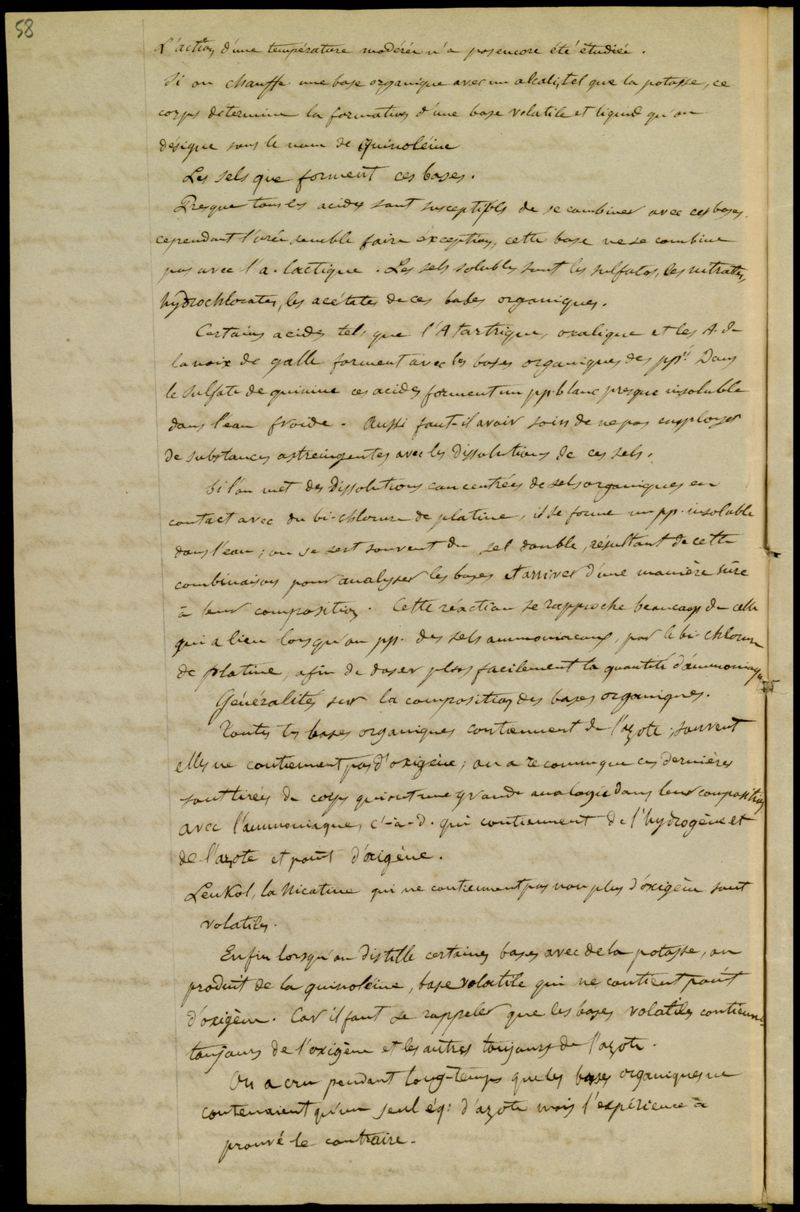 58
L'action d'une température modérée n'a pas encore été étudiée.
Si on chauffe une base organique avec un alcali, tel que la potasse, ce
corps détermine la formation d'une base volatile et liquide qu'on
désigne sous le nom de Quinoléine
Les sels que forment ces bases.
Presque tous les acides sont susceptibles de se combiner avec ces bases,
cependant l'urée semble faire exception, cette base ne se combine
pas avec l'a. lactique. Les sels solubles sont les sulfates, les nitrates,
hydrochlorates, les acétates de ces bases organiques.
Certains acides tels que l'A tartrique, oxalique et les A. de
la noix de galle forment avec les bases organiques des pp.tés Dans
le sulfate de quinine ces acides forment un pp. blanc presque insoluble
dans l'eau froide. Aussi faut-il avoir soin de ne pas employer
de substances astreingentes avec les dissolutions de ces sels.
Si l'on met des dissolutions concentrées de sels organiques en
contact avec du bi-chlorure de platine, il se forme un pp. insoluble
dans l'eau; on se sert souvent du sel double, résultant de cette
combinaison pour analyser les bases et arriver d'une manière sûre
à leur composition. Cette réaction se rapproche beaucoup de celle
qui a lieu lorsqu'on pp. des sels ammoniacaux, par le bi-chlorure
de platine, afin de doser plus facilement la quantité d'ammoniaque
Généralités sur la composition des bases organiques.
Toutes les bases organiques contiennent de l'azote; souvent
elles ne contiennent pas d'oxigène; on a reconnu que ces dernières
sont tirées de corps qui ont une grande analogie dans leur composition
avec l'ammoniaque, c'-à-d. qui contiennent de l'hydrogène et
de l'azote et point d'oxigène.
Leukol, la Nicotine qui ne contiennent pas non plus d'oxigène sont
volatiles.
Enfin lorsqu'on distille certaines bases avec de la potasse, on
produit de la quinoléine, base volatile qui ne contient point
d'oxigène. Car il faut se rappeler que les bases volatiles contiennent
toujours de l'oxigène et les autres toujours de l'azote.
On a cru pendant long-temps que les bases organiques ne
contenaient qu'un seul éq: d'azote mais l'expérience a
prouvé le contraire.